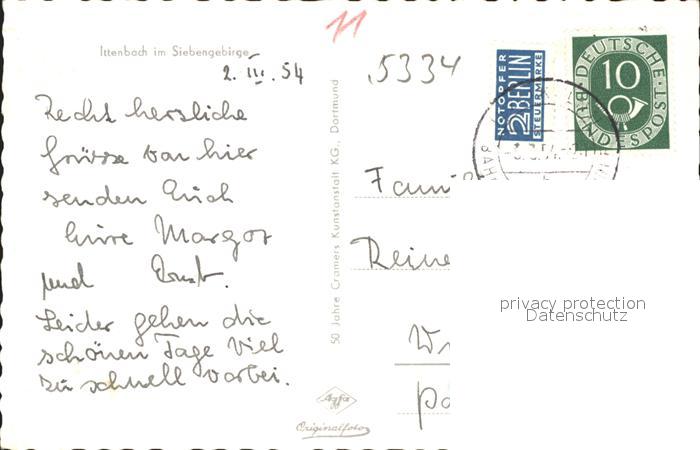 11
Ittenbach im Siebengebirge
2. III. 54
5334
Recht herzliche
Grüsse von hier
senden Euch
Eure Margot
und Ernst.
Leider gehen die
schönen Tage viel
zu schnell vorbei.
50 Jahre Cramers Kunstanstalt KG., Dortmund
Agfa
Originalfoto
NOTOPFER
2 BERLIN
STEUERMARKE
DEUTSCHE
10
BUNDESPOST
Fami
Reine
privacy protection
Datenschutz